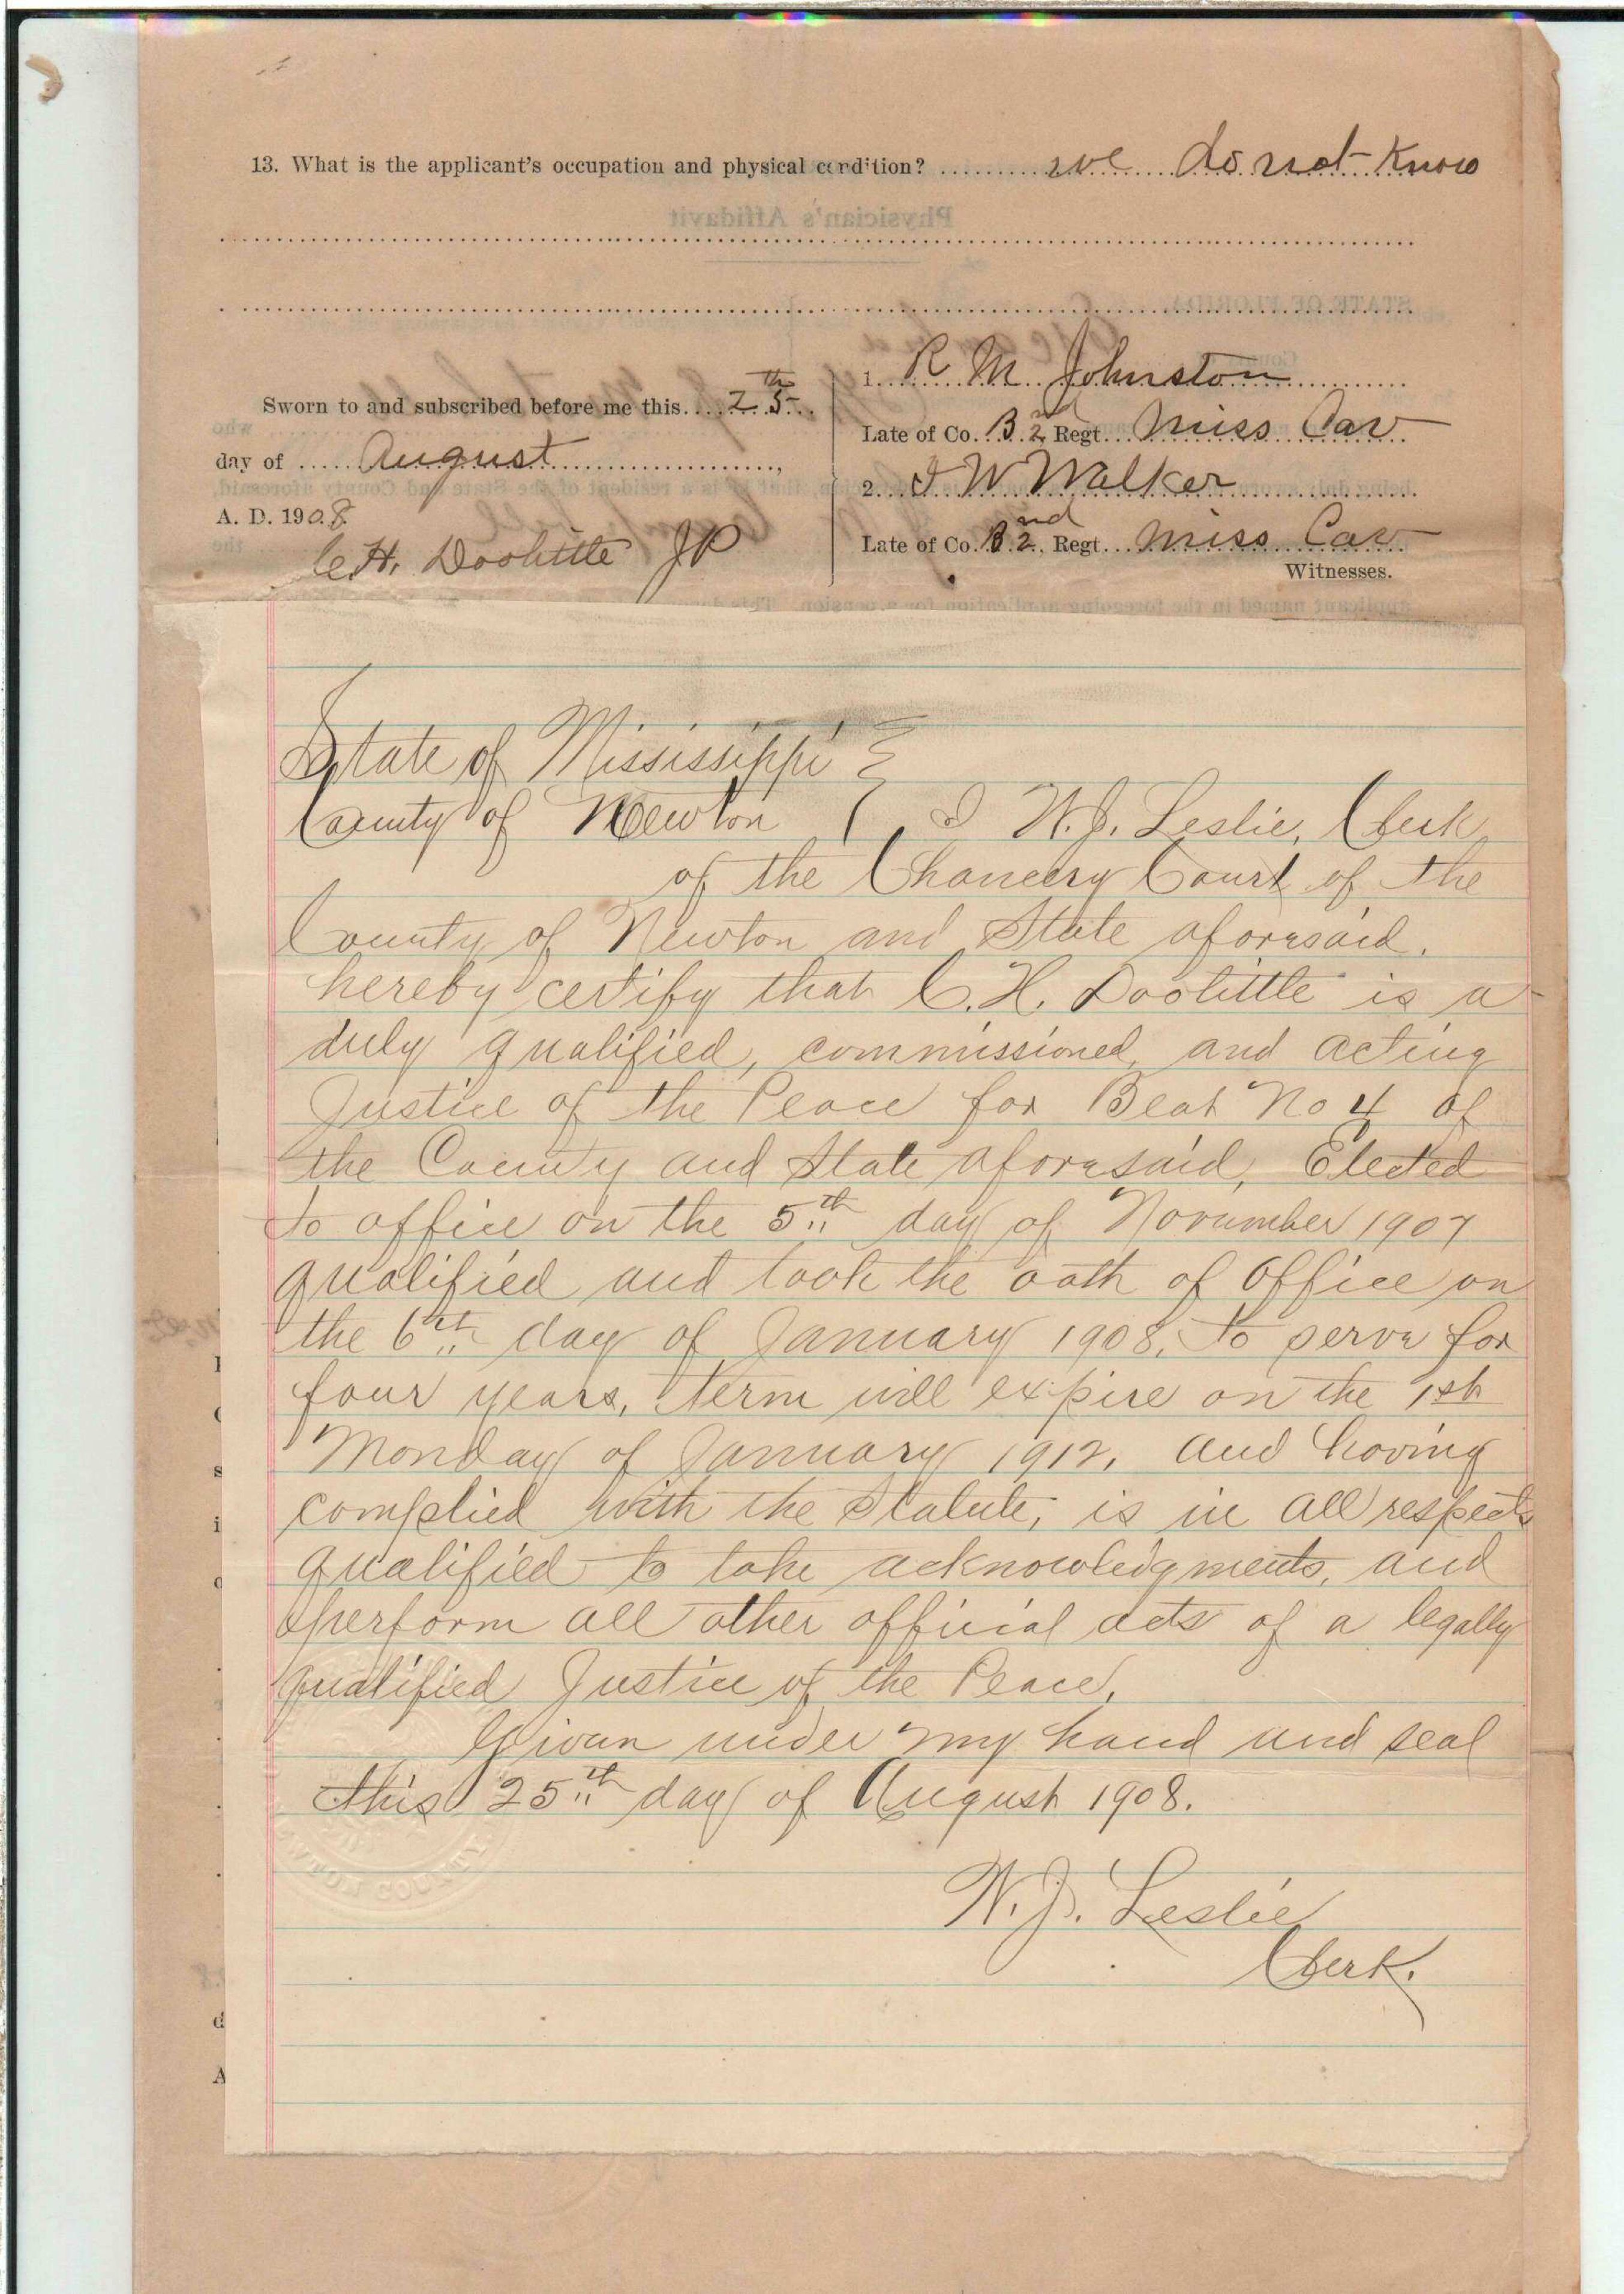 13. What is the applicant's occupation and physical condition? we do not know
Sworn to and subscribed before me this 25th
day of August,
A. D. 1908.
C. H. Doolittle JP
1. R M Johnston
Late of Co. B 2nd Regt. Miss Cav
2. J W Walker
Late of Co. B 2nd Regt. Miss Cav
Witnesses.
State of Mississippi
County of Newton I W. J. Leslie, Clerk
of the Chancery Court of the
County of Newton and State aforesaid.
hereby certify that C. H. Doolittle is a
duly qualified, commissioned, and acting
Justice of the Peace for Beat No 4 of
the County and State aforesaid, Elected
to office on the 5th day of November 1907
qualified and took the oath of Office on
the 6th day of January 1908, to serve for
four years, term will expire on the 1st
Monday of January 1912, and having
complied with the Statute, is in all respects
qualified to take acknowledgments, and
perform all other official acts of a legally
qualified Justice of the Peace.
Given under my hand and seal
this 25th day of August 1908.
W. J. Leslie
Clerk.